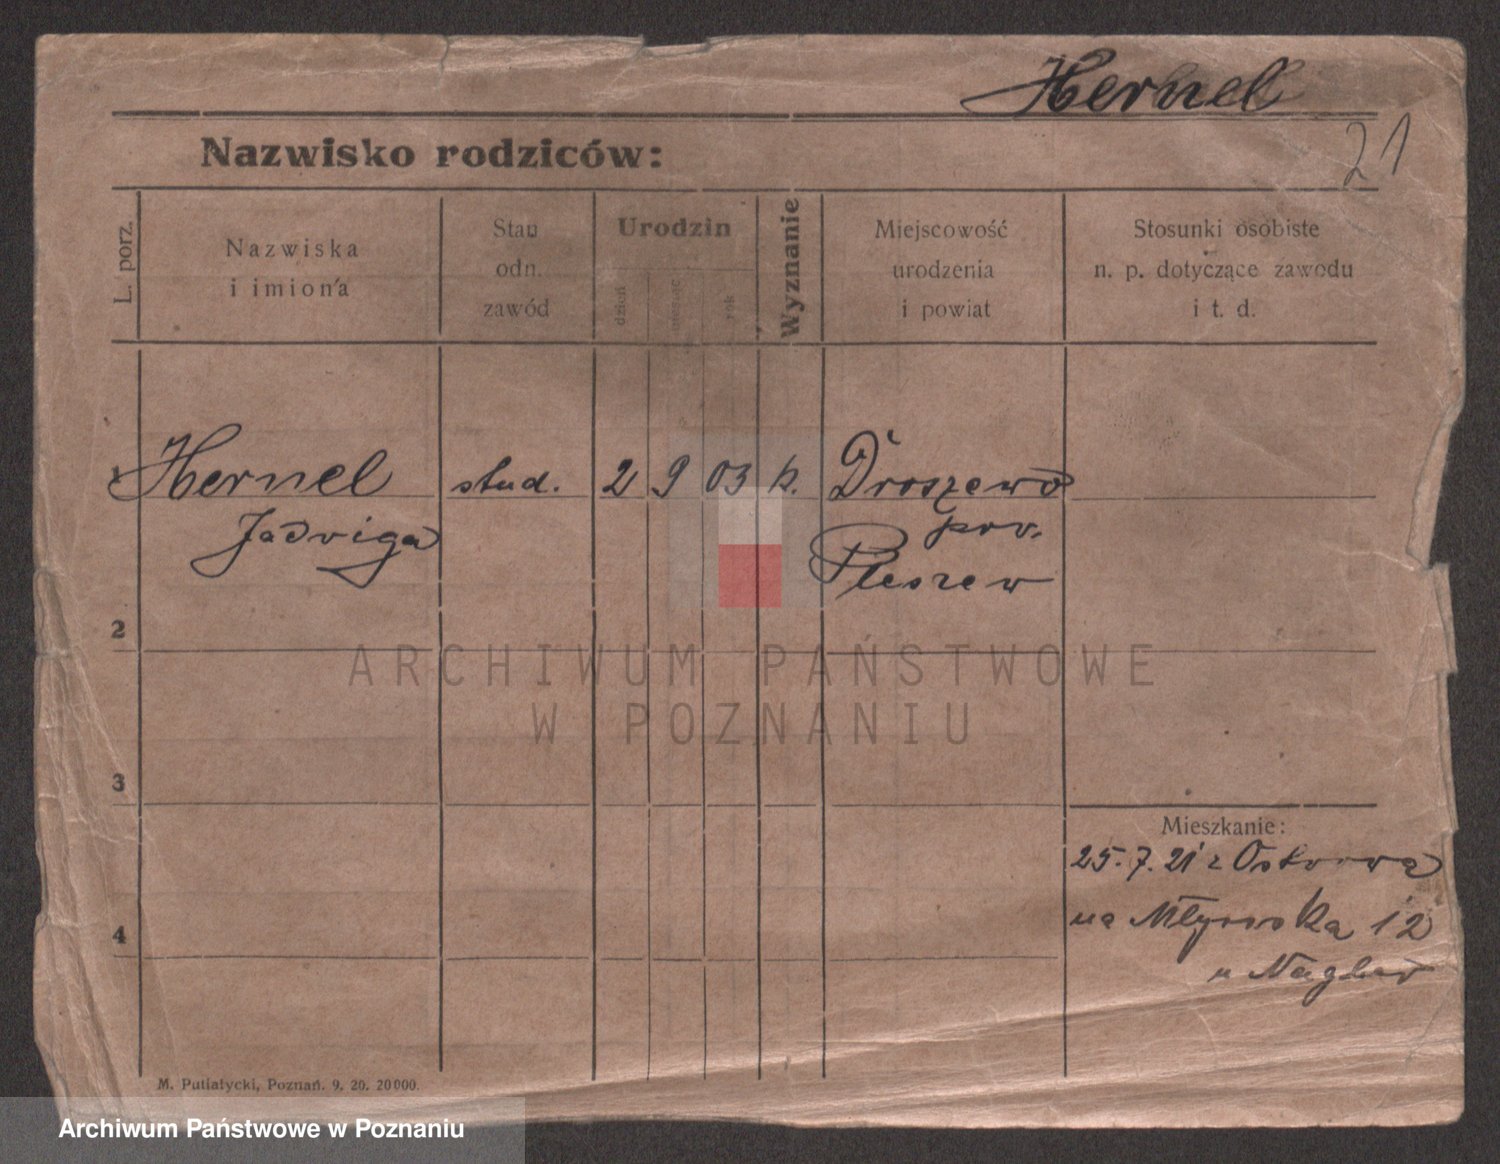 Hernel
21
Nazwisko rodziców:
L. porz.
Nazwiska
i imiona
Stan
odn.
zawód
Urodzin
dzień
miesiąc
rok
Wyznanie
Miejscowość
urodzenia
i powiat
Stosunki osobiste
n. p. dotyczące zawodu
i t. d.
1 Hernel stud. 2 9 03 k. Droszewo
Jadwiga pow.
Pleszew
2
ARCHIWUM PAŃSTWOWE
W POZNANIU
3
Mieszkanie:
25.7.21 z Ostrowa
na Młyńska 12
4
u
M. Putiatycki, Poznań. 9. 20. 20000.
Archiwum Państwowe w Poznaniu